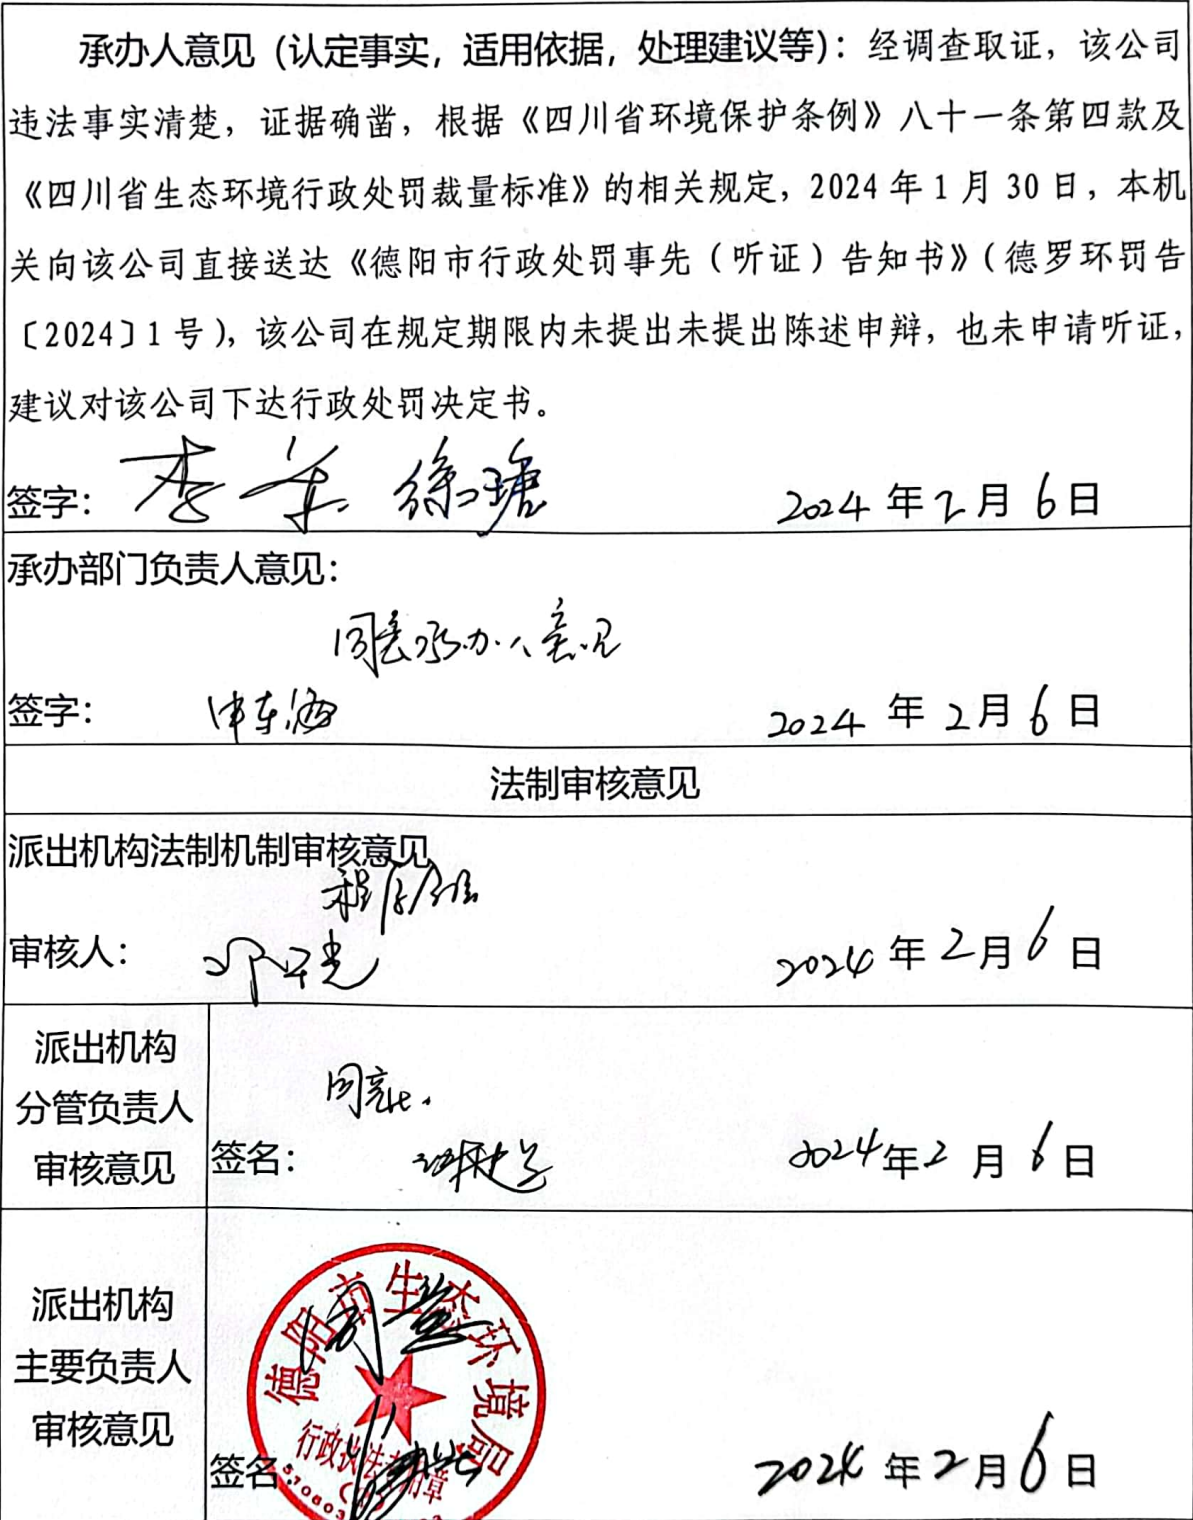 承办人意见（认定事实，适用依据，处理建议等）：经调查取证，该公司
违法事实清楚，证据确凿，根据《四川省环境保护条例》八十一条第四款及
《四川省生态环境行政处罚裁量标准》的相关规定，2024年1月30日，本机
关向该公司直接送达《德阳市行政处罚事先（听证）告知书》（德罗环罚告
〔2024〕1号），该公司在规定期限内未提出未提出陈述申辩，也未申请听证，
建议对该公司下达行政处罚决定书。
签字： 2024年2月6日
承办部门负责人意见：
同意承办人意见
签字： 2024年2月6日
法制审核意见
派出机构法制机制审核意见
审核人： 2024年2月6日
派出机构
分管负责人
审核意见
同意
签名： 2024年2月6日
派出机构
主要负责人
审核意见
同意
德阳市生态环境局
行政执法专用章
签名 2024年2月6日